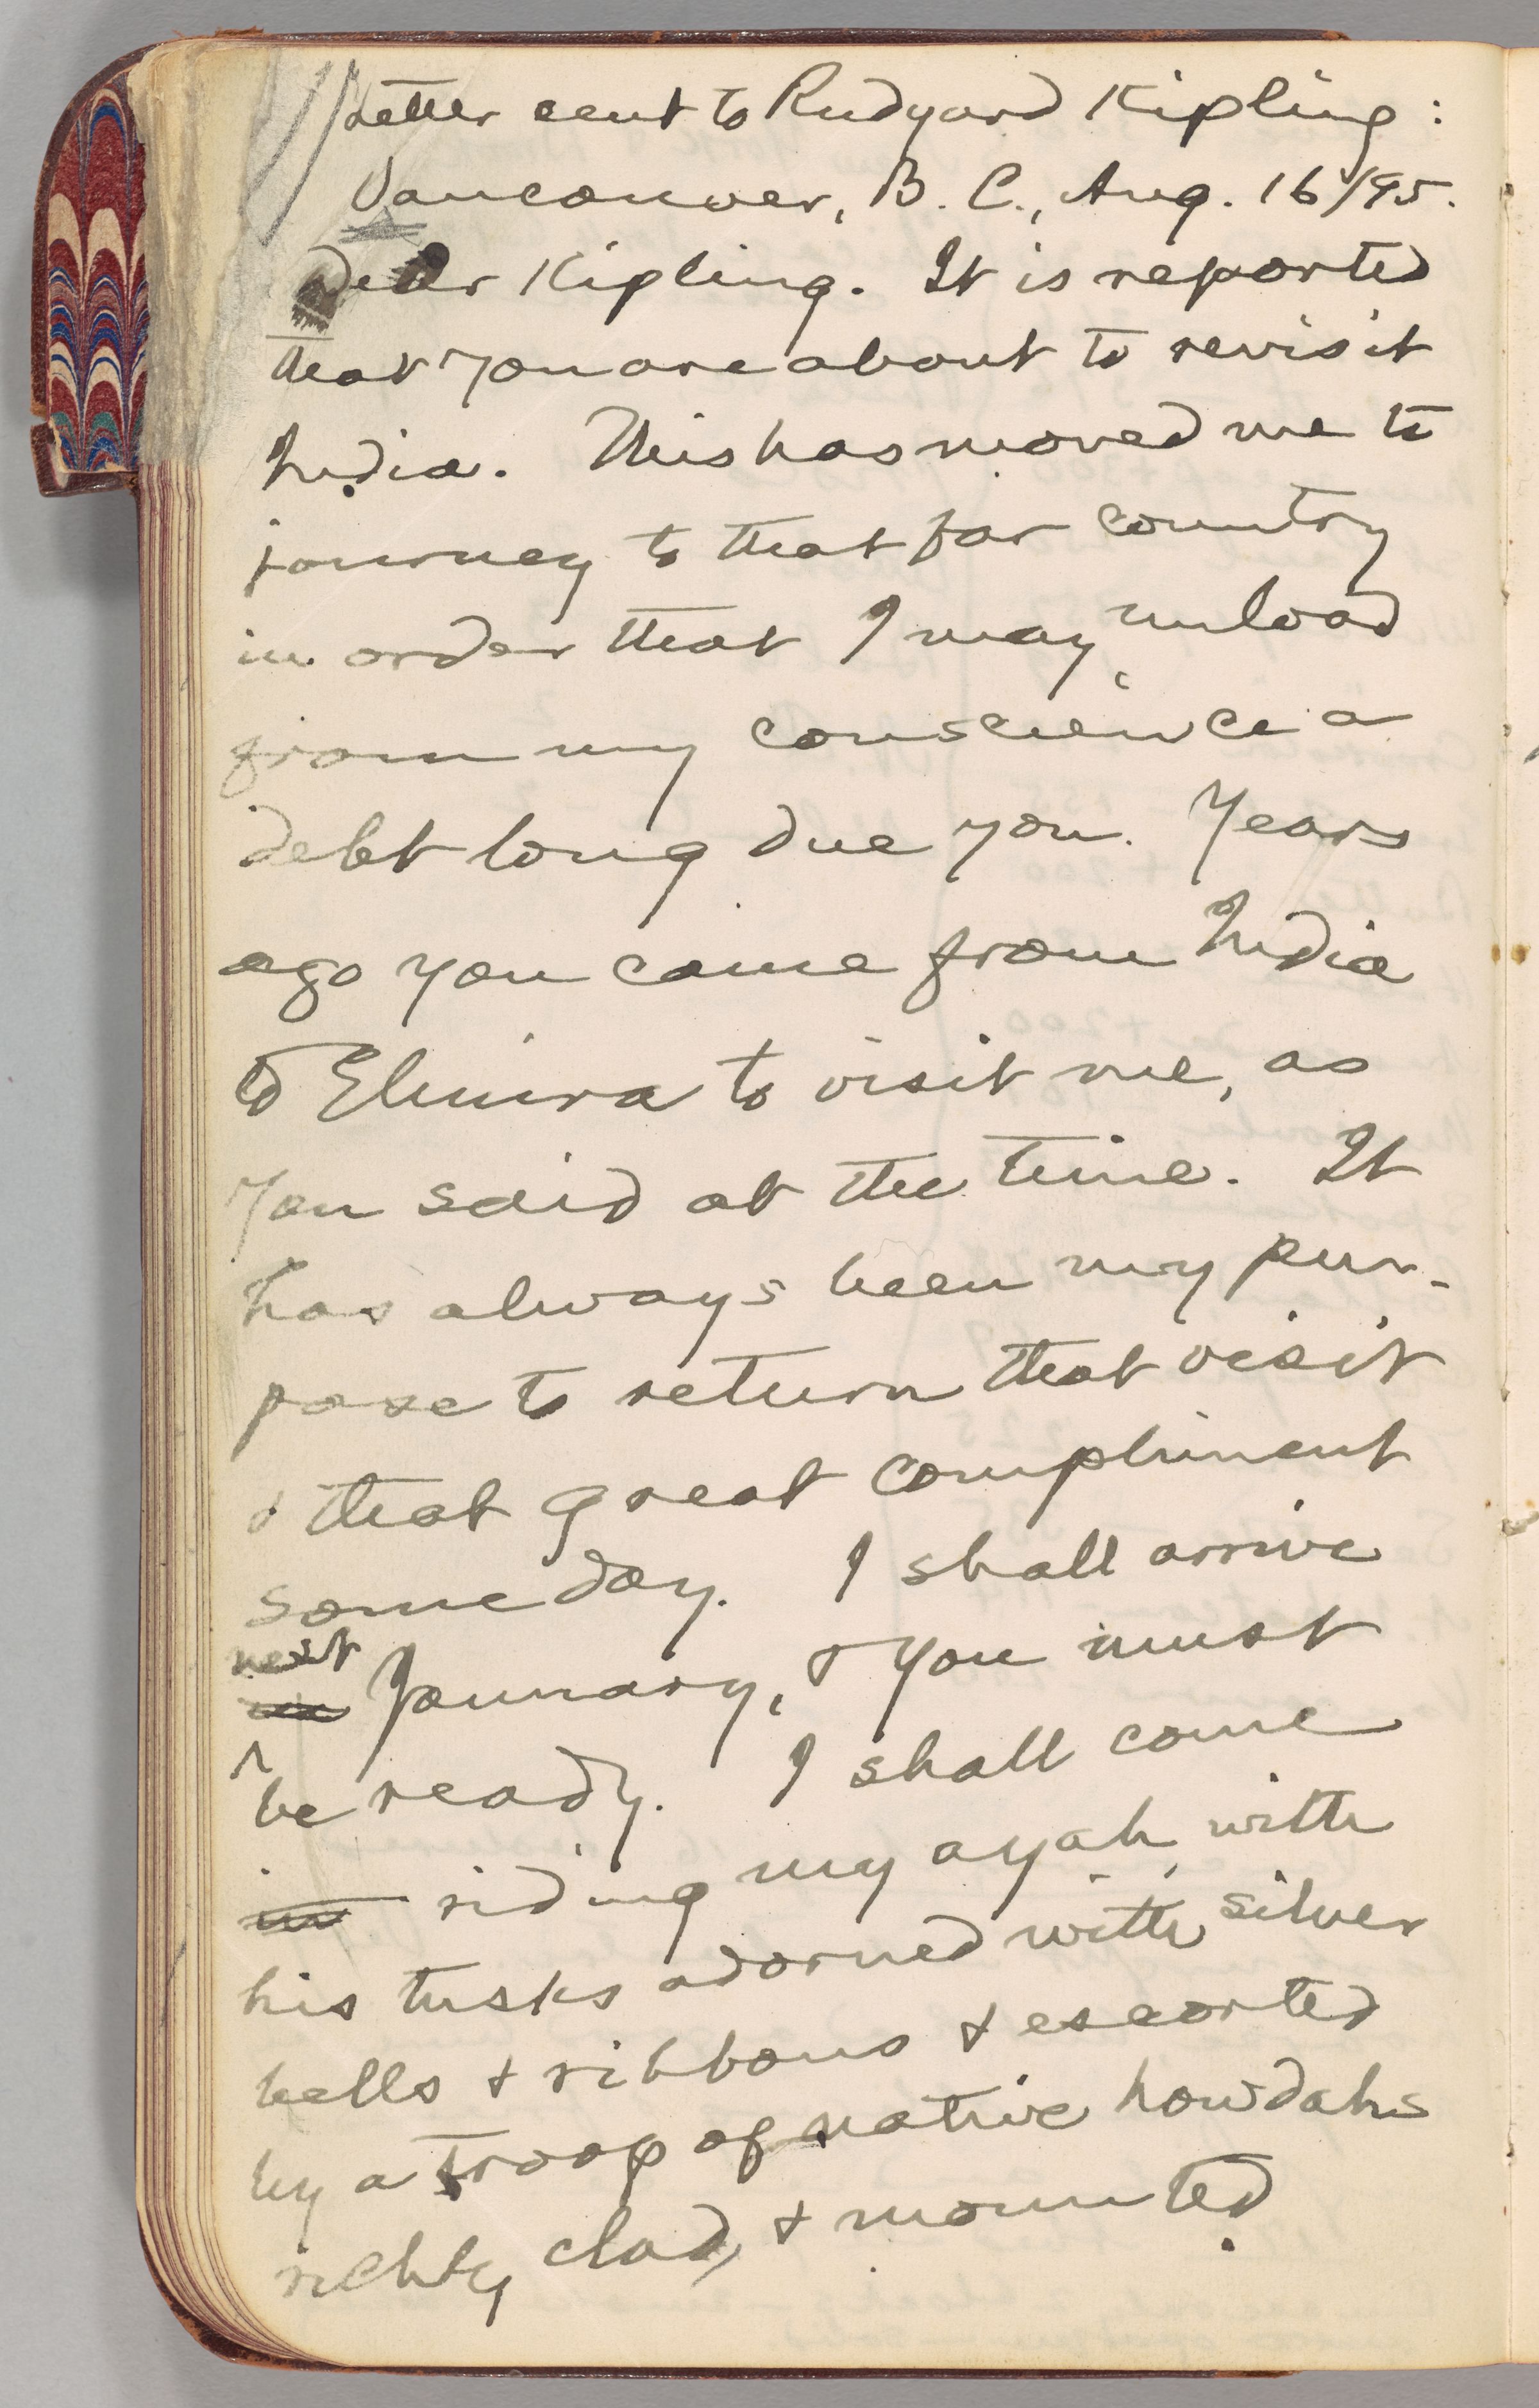 Letter sent to Rudyard Kipling:
Vancouver, B. C., Aug. 16/95.
Dear Kipling. It is reported
that you are about to revisit
India. This has moved me to
journey to that far country
in order that I may unload
from my conscience a
debt long due you. Years
ago you came from India
to Elmira to visit me, as
you said at the time. It
has always been my pur-
pose to return that visit
& that great compliment
some day. I shall arrive
next
in January, & you must
be ready. I shall come
in riding my ayah, with
his tusks adorned with silver
bells & ribbons & escorted
by a troop of native howdahs
richly clad, & mounted